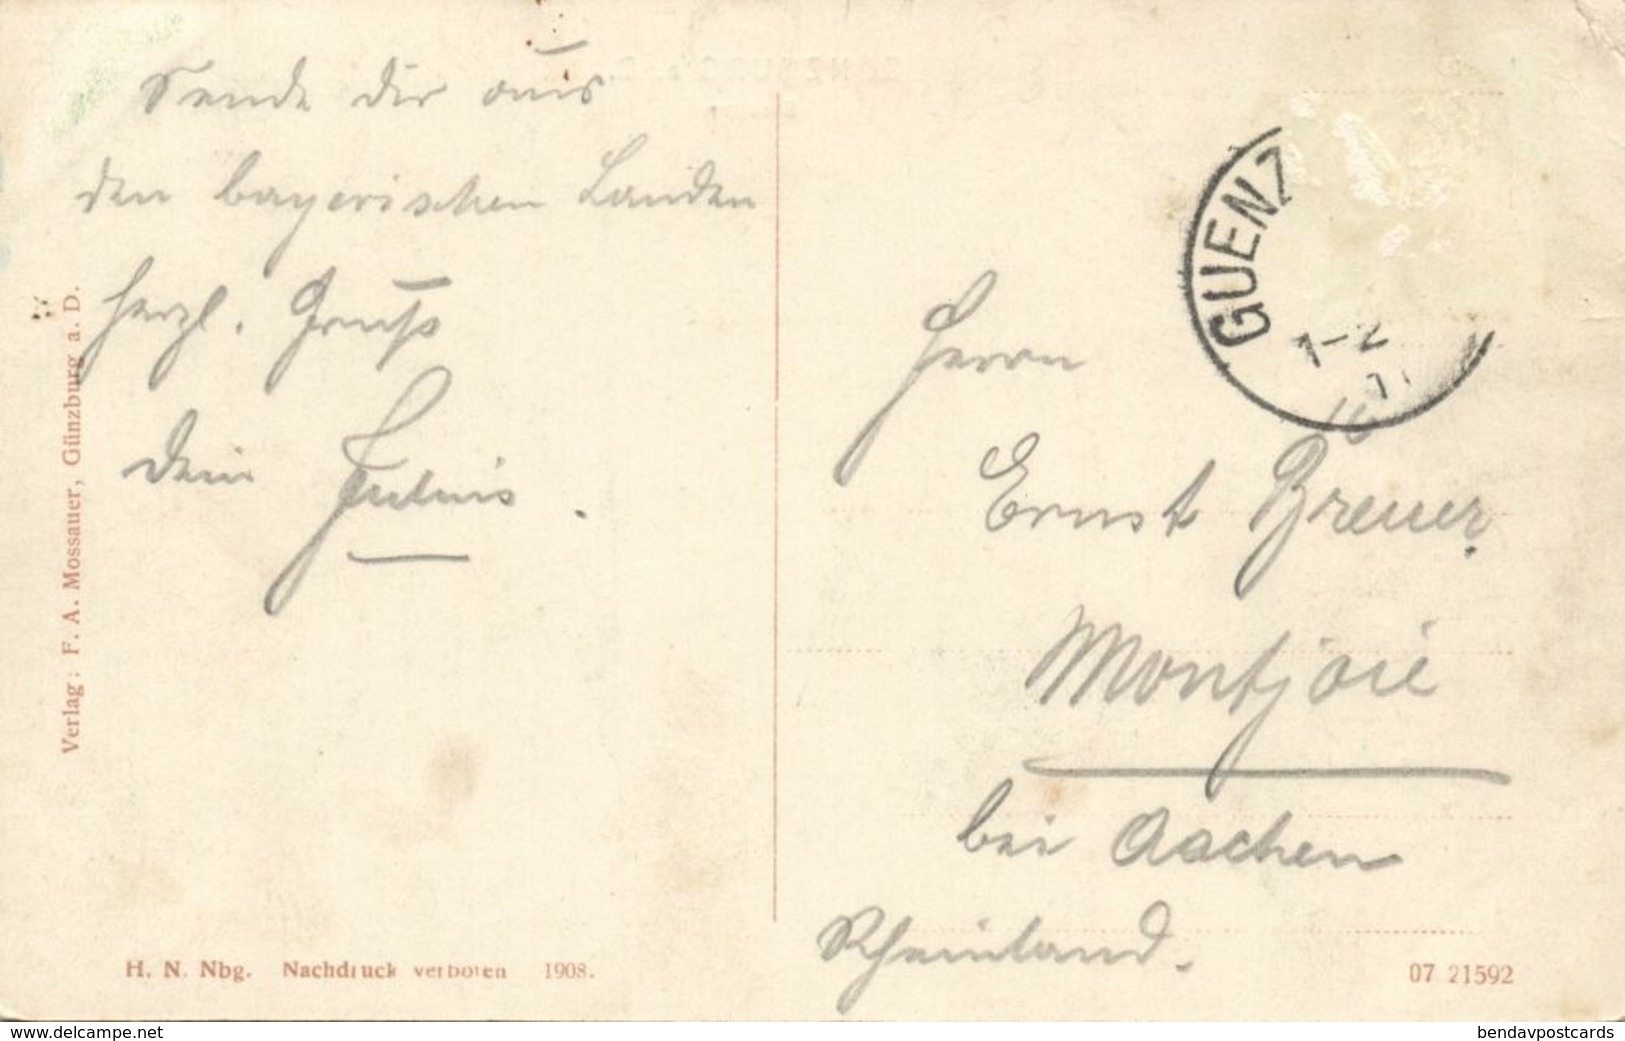 Sende dir aus
den bayerischen Landen
herzl. Gruß
Dein
Verlag: F. A. Mossauer, Günzburg a. D.
H. N. Nbg. Nachdruck verboten 1908.
GUENZ
1-2
Herrn
Ernst Breuer.
Montjoie
bei Aachen
Rheinland.
07 21592
www.delcampe.net
bendavpostcards